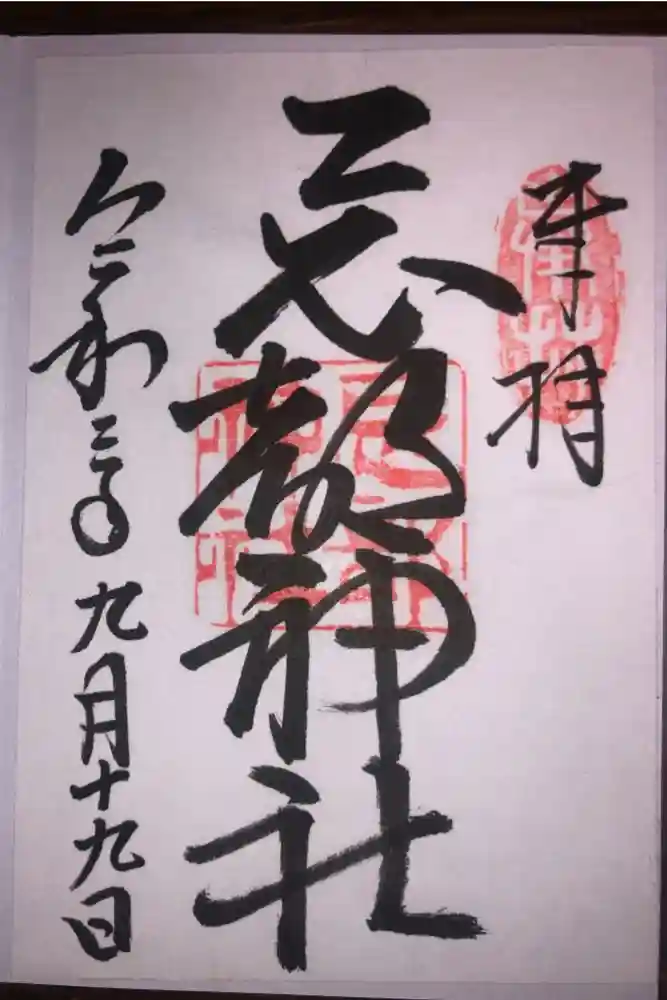 奉拝
忌部神社
令和三年九月十九日